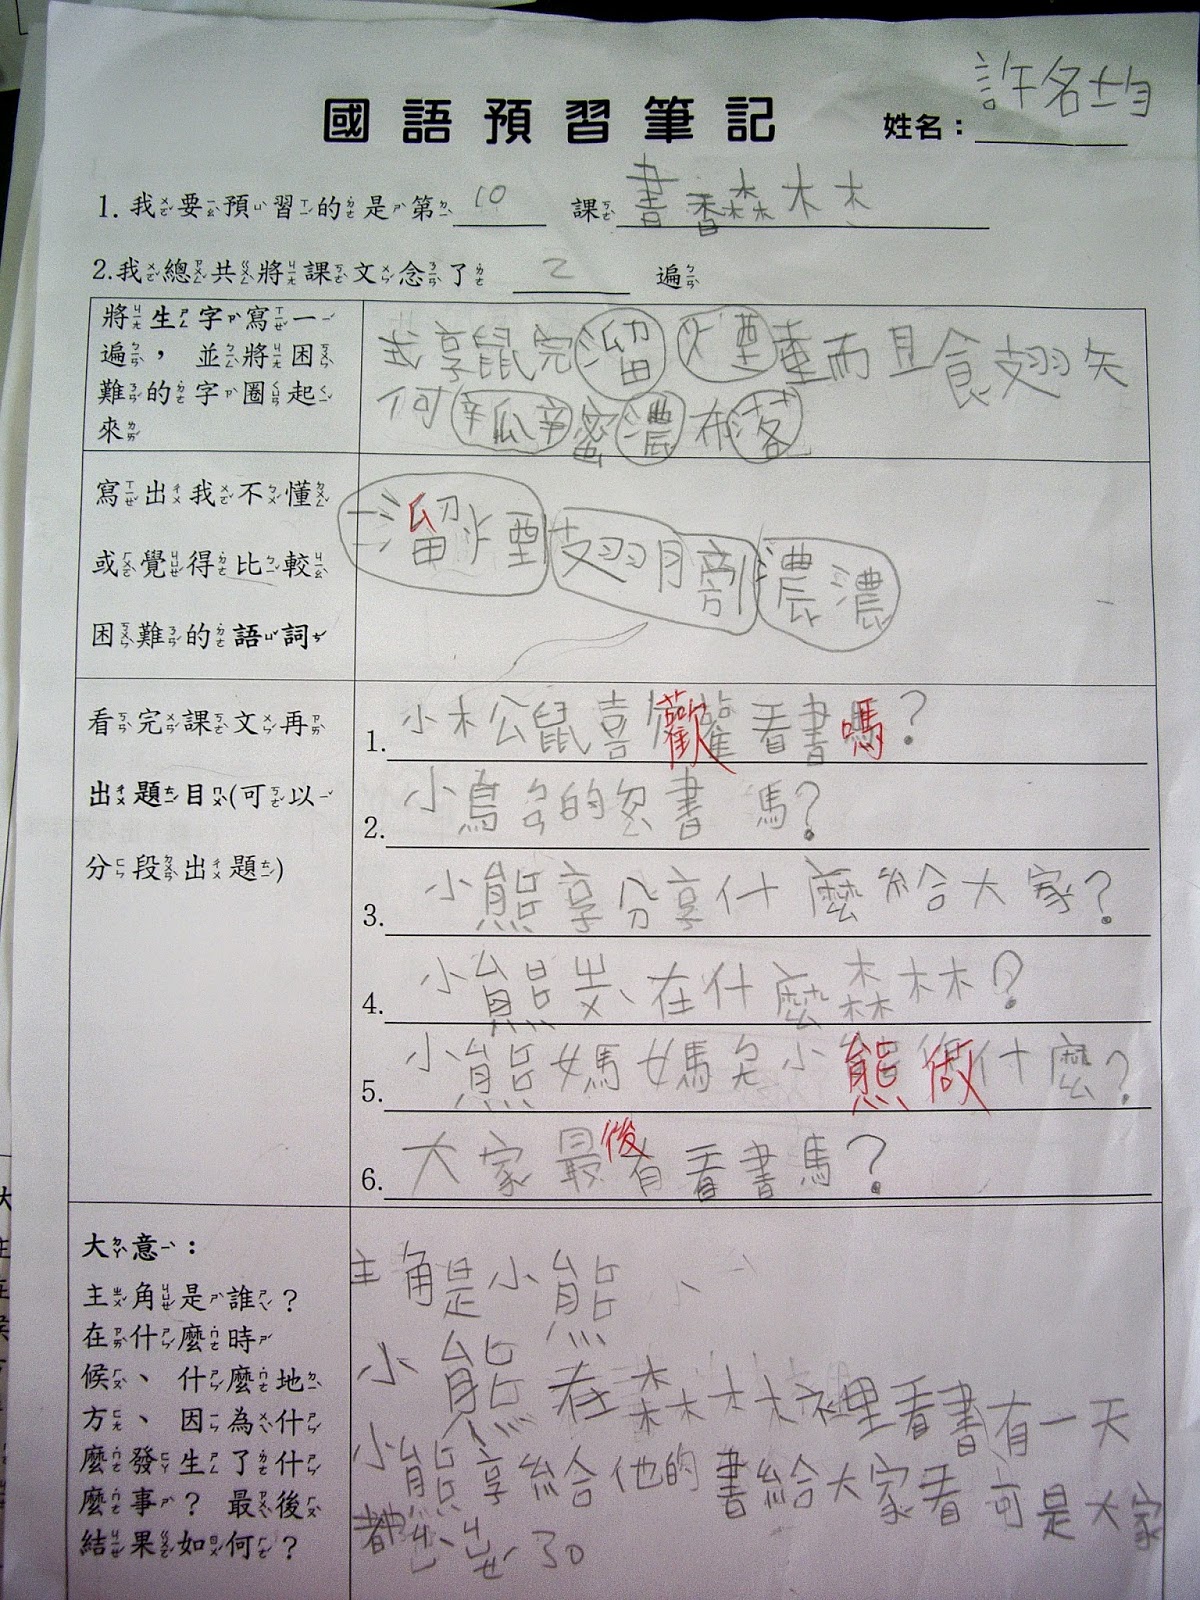 國語預習筆記
姓名：許名均
1. 我要預習的是第 10 課 書香森林
2.我總共將課文念了 2 遍
將生字寫一遍，並將困難的字圈起來
享鼠完溜煙童而且食翅矢
何瓜蜜濃布落
寫出我不懂或覺得比較困難的語詞
溜煙翅膀濃濃
看完課文再出題目(可以分段出題)
1. 小松鼠喜歡看書嗎？
2. 小鳥ㄉㄢ的看書馬？
3. 小熊享分享什麼給大家？
4. 小熊ㄓㄨˋ在什麼森林？
5. 小熊媽媽ㄐㄧㄠˋ小熊做什麼？
6. 大家最後有看書馬？
大意：
主角是誰？
在什麼時候、什麼地方、因為什麼發生了什麼事？最後結果如何？
主角是小熊
小熊在森林裡看書有一天
小熊享給他的書給大家看可是大家
都